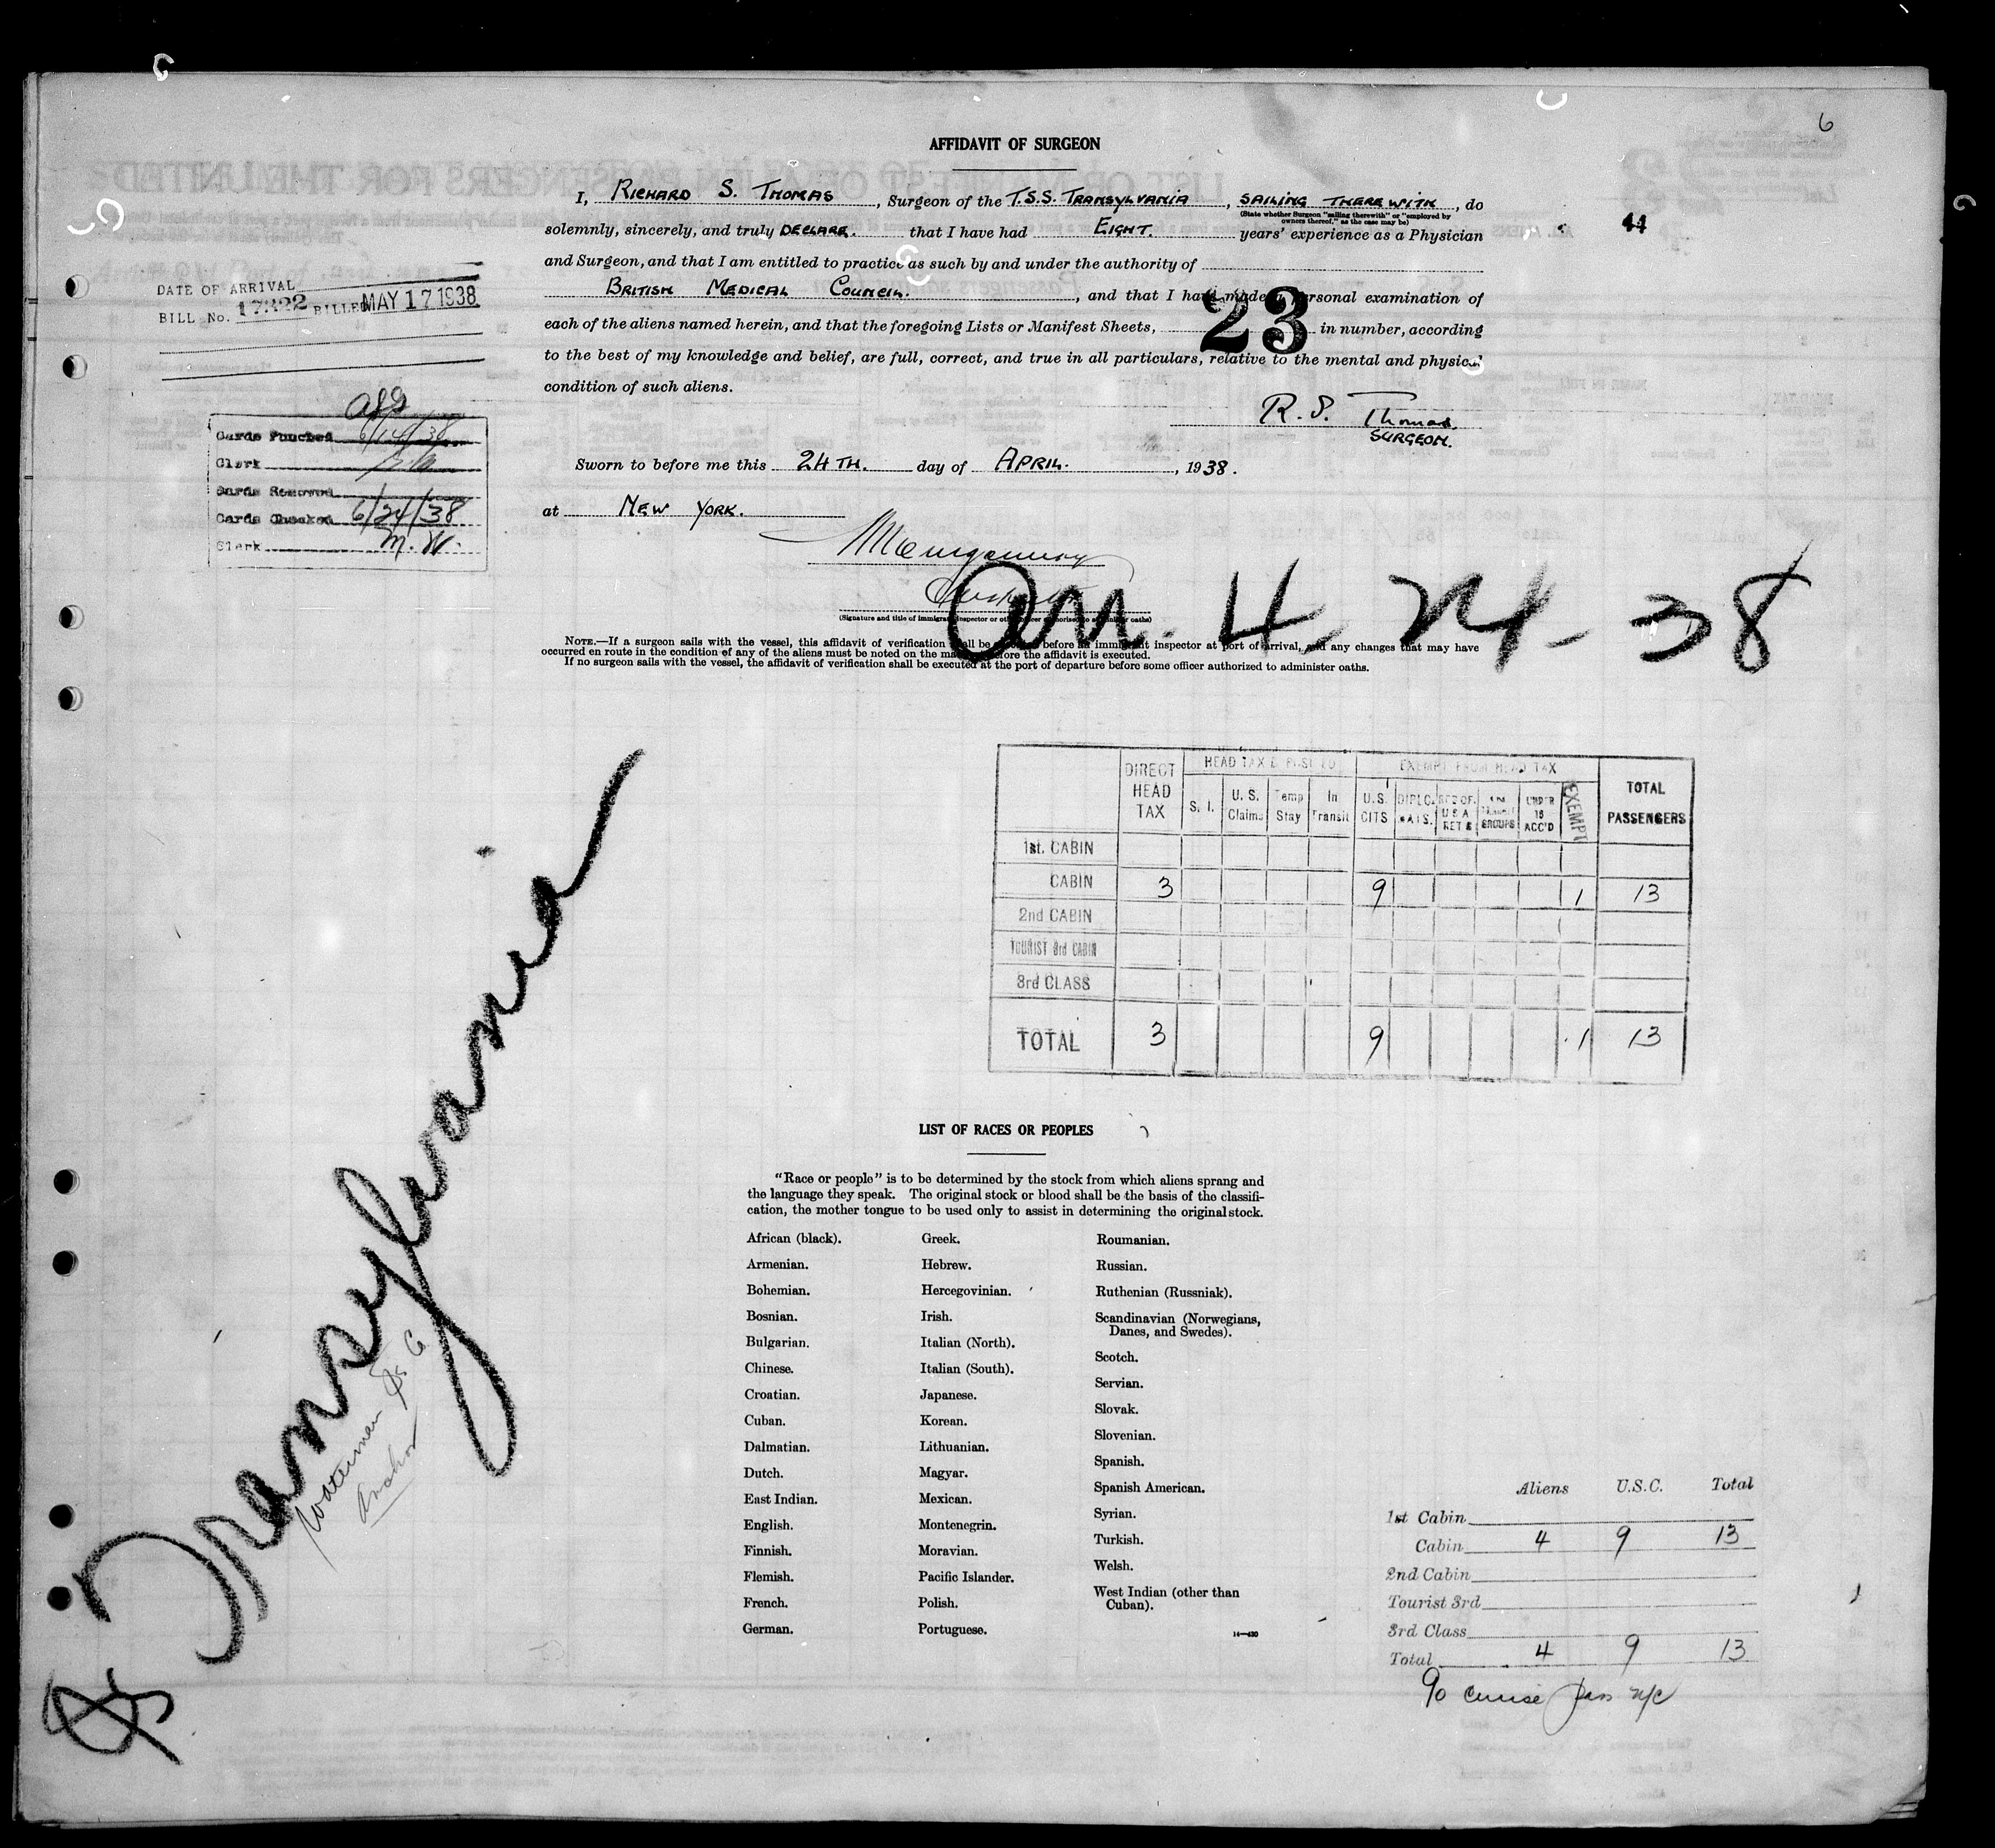 6
AFFIDAVIT OF SURGEON
I, RICHARD S. THOMAS, Surgeon of the T.S.S. TRANSYLVANIA, SAILING THEREWITH, do
(State whether Surgeon "sailing therewith" or "employed by
owners thereof," as the case may be)
44
solemnly, sincerely, and truly DECLARE. that I have had EIGHT. years' experience as a Physician
and Surgeon, and that I am entitled to practice as such by and under the authority of
BRITISH MEDICAL COUNCIL., and that I have made a personal examination of
each of the aliens named herein, and that the foregoing Lists or Manifest Sheets, 23 in number, according
to the best of my knowledge and belief, are full, correct, and true in all particulars, relative to the mental and physical
condition of such aliens.
R. S. Thomas.
SURGEON.
Sworn to before me this 24TH. day of APRIL., 1938.
at NEW YORK.
(Signature and title of immigrant inspector or other officer authorized to administer oaths)
NOTE.—If a surgeon sails with the vessel, this affidavit of verification shall be executed before an immigrant inspector at port of arrival, and any changes that may have
occurred en route in the condition of any of the aliens must be noted on the manifest before the affidavit is executed.
If no surgeon sails with the vessel, the affidavit of verification shall be executed at the port of departure before some officer authorized to administer oaths.
DATE OF ARRIVAL
BILL No. 17322 BILLED MAY 17 1938
Cards Punched 6/14/38
Clerk
Cards Removed
Cards Checked 6/24/38
Clerk M.W.
am. 4-24-38
DIRECT HEAD TAX
HEAD TAX DEPOSITED
EXEMPT FROM HEAD TAX
TOTAL PASSENGERS
S. I. U. S. Claims Temp Stay In Transit U.S. CITS DIPLOMATS. RES OF. U S A RET G GROUPS UNDER 16 ACC'D EXEMPT
1st. CABIN
CABIN 3 9 1 13
2nd CABIN
TOURIST 3rd CABIN
3rd CLASS
TOTAL 3 9 1 13
Transylvania
Anchor
LIST OF RACES OR PEOPLES
"Race or people" is to be determined by the stock from which aliens sprang and
the language they speak. The original stock or blood shall be the basis of the classifi-
cation, the mother tongue to be used only to assist in determining the original stock.
African (black).
Armenian.
Bohemian.
Bosnian.
Bulgarian.
Chinese.
Croatian.
Cuban.
Dalmatian.
Dutch.
East Indian.
English.
Finnish.
Flemish.
French.
German.
Greek.
Hebrew.
Hercegovinian.
Irish.
Italian (North).
Italian (South).
Japanese.
Korean.
Lithuanian.
Magyar.
Mexican.
Montenegrin.
Moravian.
Pacific Islander.
Polish.
Portuguese.
Roumanian.
Russian.
Ruthenian (Russniak).
Scandinavian (Norwegians,
Danes, and Swedes).
Scotch.
Servian.
Slovak.
Slovenian.
Spanish.
Spanish American.
Syrian.
Turkish.
Welsh.
West Indian (other than
Cuban).
Aliens U.S.C. Total
1st Cabin
Cabin 4 9 13
2nd Cabin
Tourist 3rd
3rd Class
Total 4 9 13
90 cruise pass n/c